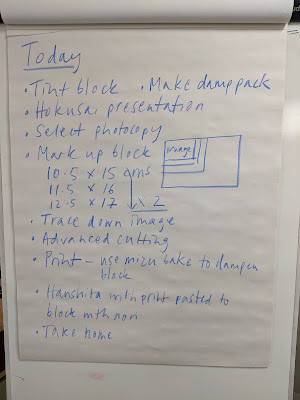 Today
• Tint block • Make damp pack
• Hokusai presentation
• Select photocopy
• Mark up block
image
10.5 x 15 cms
11.5 x 16
12.5 x 17 x 2
• Trace down image
• Advanced cutting
• Print – use mizu bake to dampen
block
• Hanshita with print pasted to
block with nori
• Take home